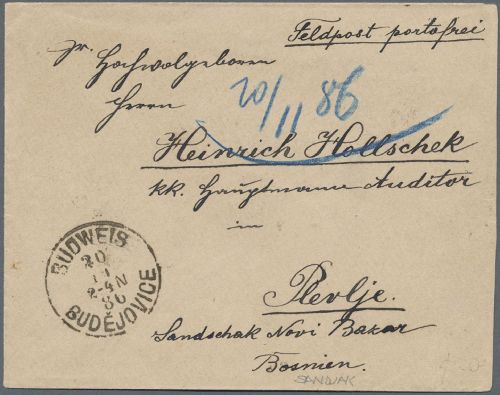 Feldpost portofrei
Sr. Hochwolgeboren
Herrn
20/11 86
Heinrich Hollschek
kk. Hauptmann Auditor
in
Plevlje.
Sandschak Novi Bazar
Bosnien.
SANDJAK
BUDWEIS
20
11
2-4N
86
BUDĚJOVICE